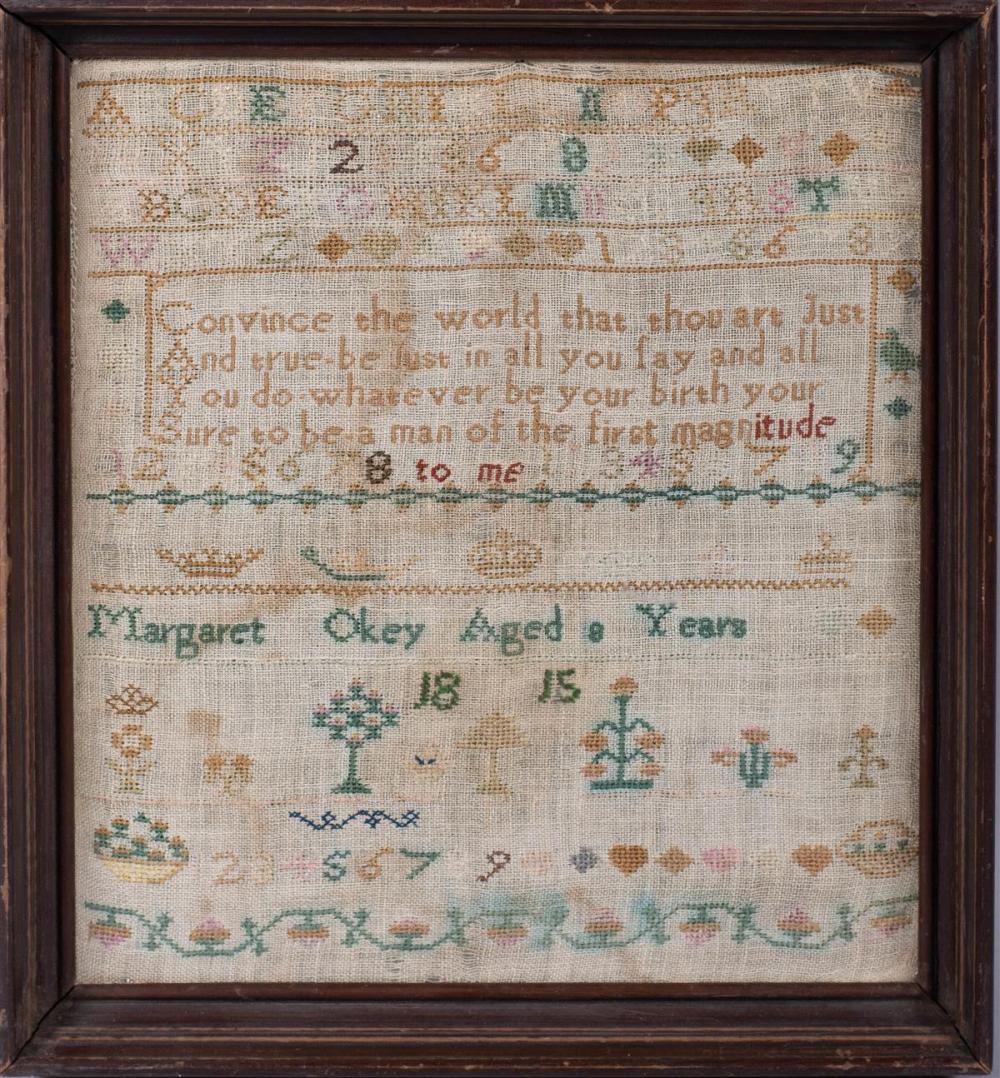 A C E G H I L N P Q R V
X Z 2 6 8
B C D E G H I K L M N Q R S T
W Z 1 3 6 6 8
Convince the world that thou art Just
And true-be Just in all you ſay and all
You do-whatever be your birth your
Sure to be-a man of the first magnitude
1 2 5 6 7 8 to me 1 3 4 5 7 9
Margaret Okey Aged 8 Years
18 15
2 3 4 5 6 7 9